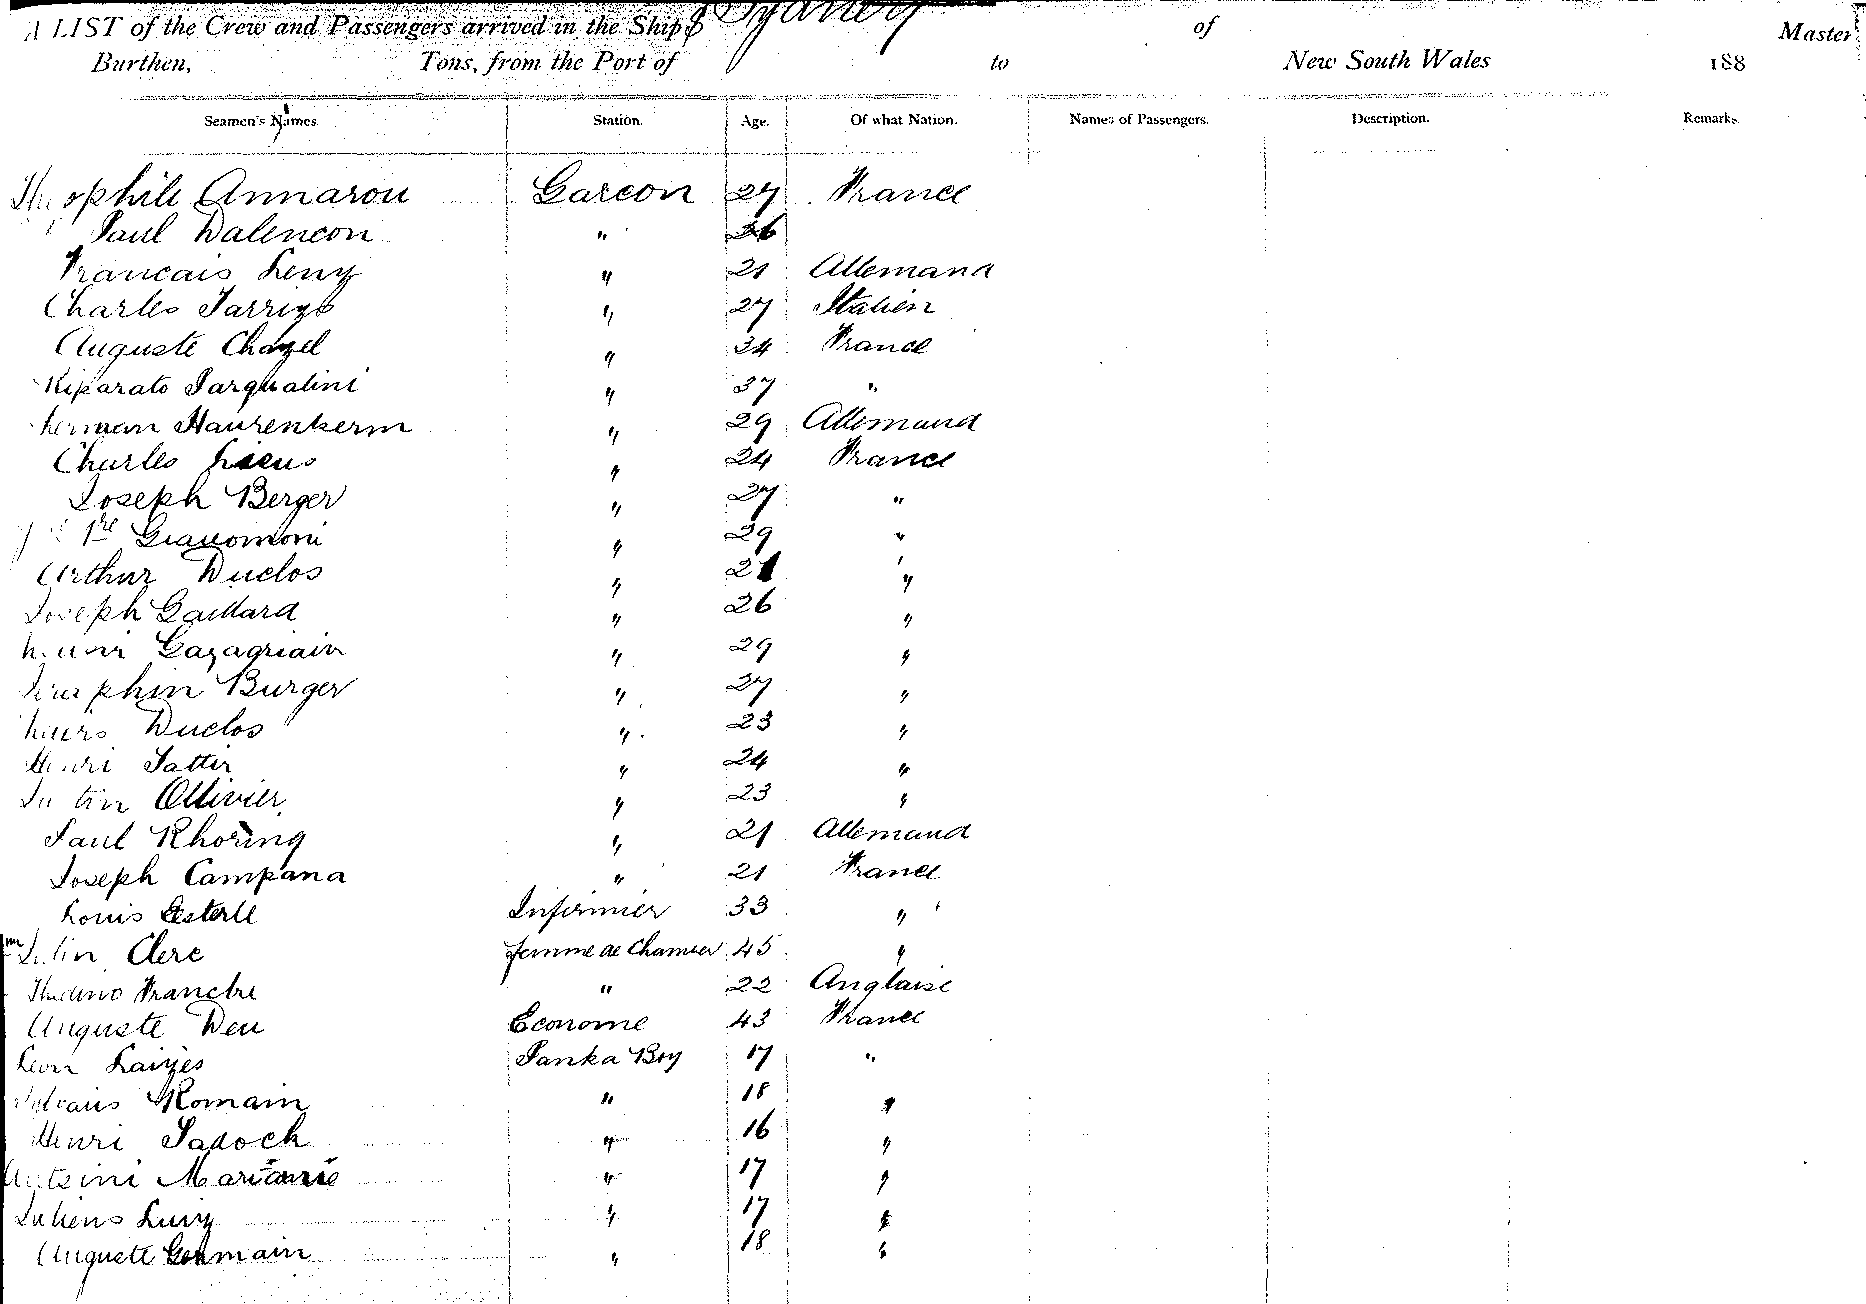 A LIST of the Crew and Passengers arrived in the Ship Sydney of Master
Burthen, Tons, from the Port of to New South Wales 188
Seamen's Names. Station. Age. Of what Nation. Names of Passengers. Description. Remarks.
Theophile Annarou Garcon 27 France
Paul Dalencon " 26
Francais Leny " 21 Allemand
Charles Tarrigo " 27 Italien
Auguste Chazel " 34 France
Riparato Parqualini " 37 "
herman Haurenherm " 29 Allemand
Charles " 24 France
Joseph Berger " 27 "
1re Giacomoni " 29 "
Arthur Duclos " 21 "
Joseph Gaillard " 26 "
Gazagriain " 29 "
Seraphin Burger " 27 "
Duclos " 23 "
Henri " 24 "
Justin Ollivier " 23 "
Paul Rhoring " 21 Allemand
Joseph Campana " 21 France
Louis Esterle Infirmier 33 "
Clerc femme de Chambre 45 "
" 22 Anglaise
Auguste Deu Econome 43 France
Leon Panka Boy 17 "
Romain " 18 "
Henri Sadoch " 16 "
" 17 "
Juliens Luvy " 17 "
Auguste Germain " 18 "